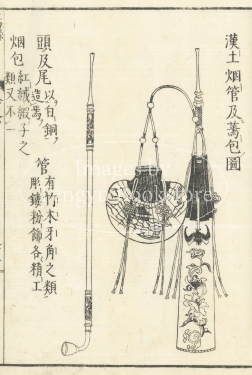 漢土烟管及蔫包圖
頭及尾以白銅
造焉
管有竹木牙角之類
彫鏤粉飾各精工
烟包紅絨緞子之
類又不一
Images by